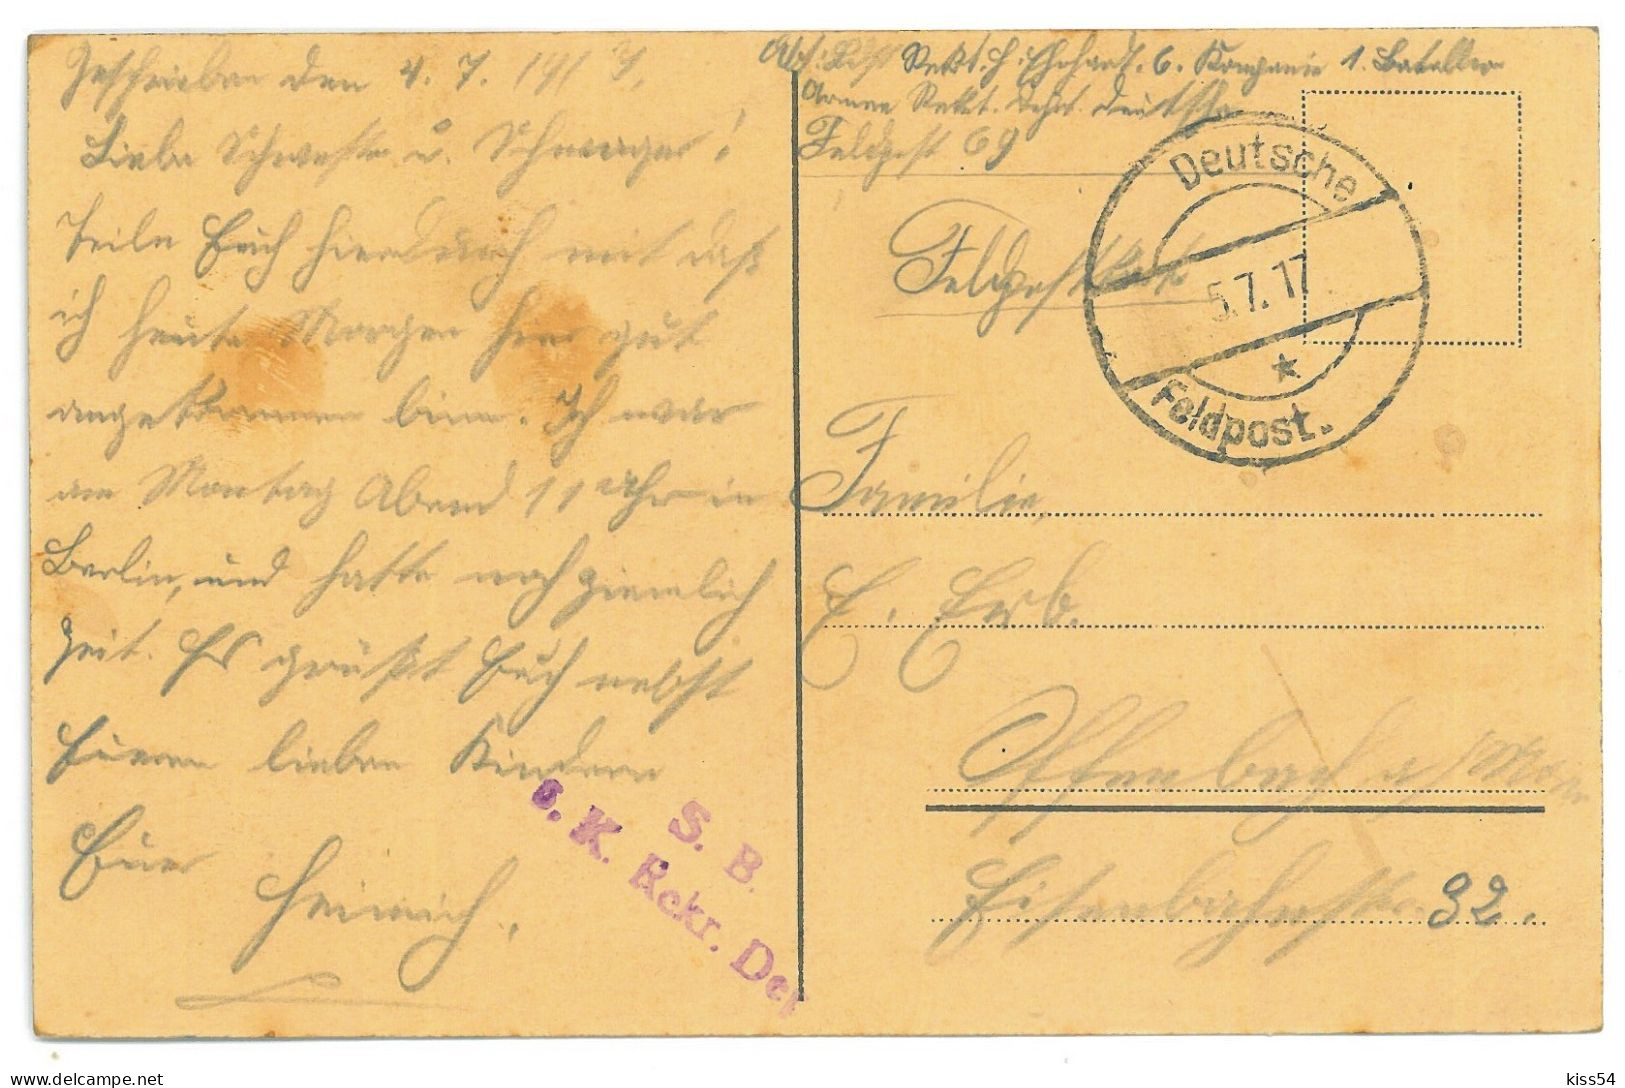 Geschrieben den 4. 7. 1917.
Liebe Schwester u. Schwager!
Teile Euch hierdurch mit daß
ich heute Morgen hier gut
angekommen bin. Ich war
am Montag Abend 11 Uhr in
Berlin, und hatte noch ziemlich
Zeit. Es grüßt Euch nebst
Euern lieben Kindern
Euer Heinrich.
S. B.
s. K. Rekr. Dep
Rekt. H. Ehrhardt. 6. Kompanie 1. Batallion
Armee Rekt. Deutsche
Feldpost 69
Feldpostkarte
Deutsche
5.7.17
Feldpost.
Familie,
E. Erb.
Offenbach a/Main
32.
delcampe.net
kiss54